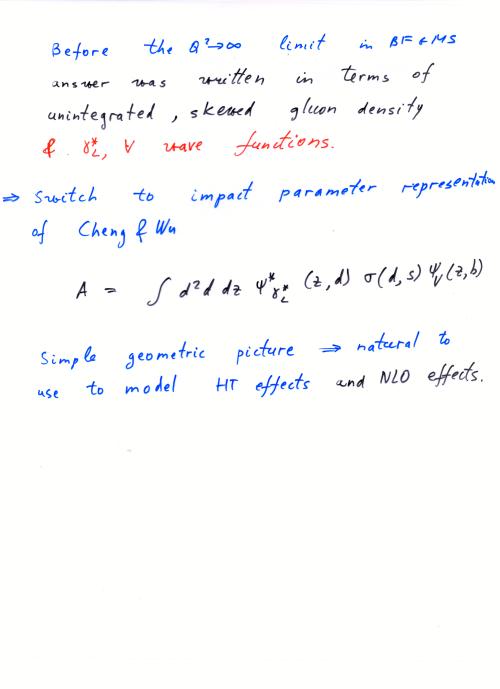 Before the Q²→∞ limit in BF&MS
answer was written in terms of
unintegrated, skewed gluon density
& γ*_L, V wave functions.
⇒ Switch to impact parameter representation
of Cheng & Wu
A = ∫ d²d dz ψ*_{γ*_L} (z,d) σ(d,s) ψ_V(z,b)
Simple geometric picture ⇒ natural to
use to model HT effects and NLO effects.